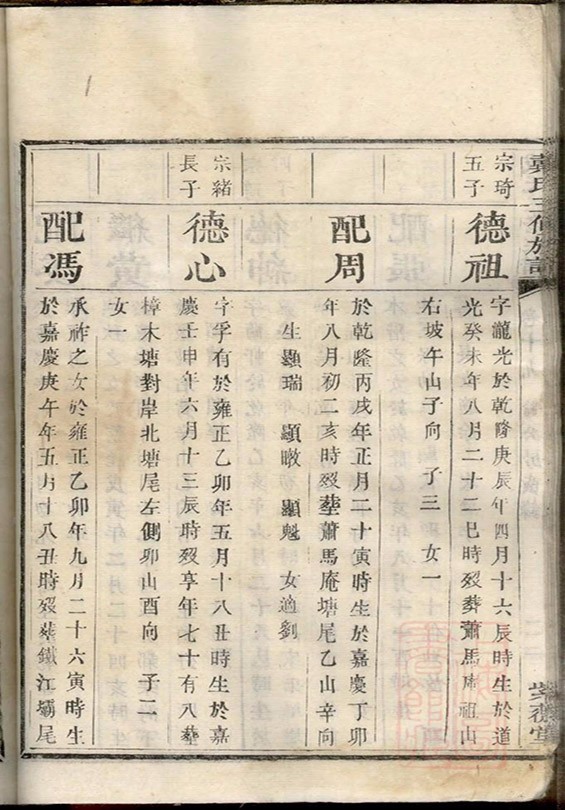 宗琦
五子
德祖
字瀧光於乾隆庚辰年四月十六辰時生於道
光癸未年八月二十二巳時歿葬蕭馬庵祖山
右坡午山子向 子三 女一
配周
於乾隆丙戌年正月二十寅時生於嘉慶丁卯
年八月初二亥時歿塟蕭馬庵塘尾乙山辛向
生顯瑞 顯暾 顯魁 女適劉
宗緒
長子
德心
字孚有於雍正乙卯年五月十八丑時生於嘉
慶壬申年六月十三辰時歿享年七十有八塟
樟木塘對岸北塘尾左側卯山酉向 子一
女一
配馮
承祚之女於雍正乙卯年九月二十六寅時生
於嘉慶庚午年五月十八丑時歿塟鐵江壩尾